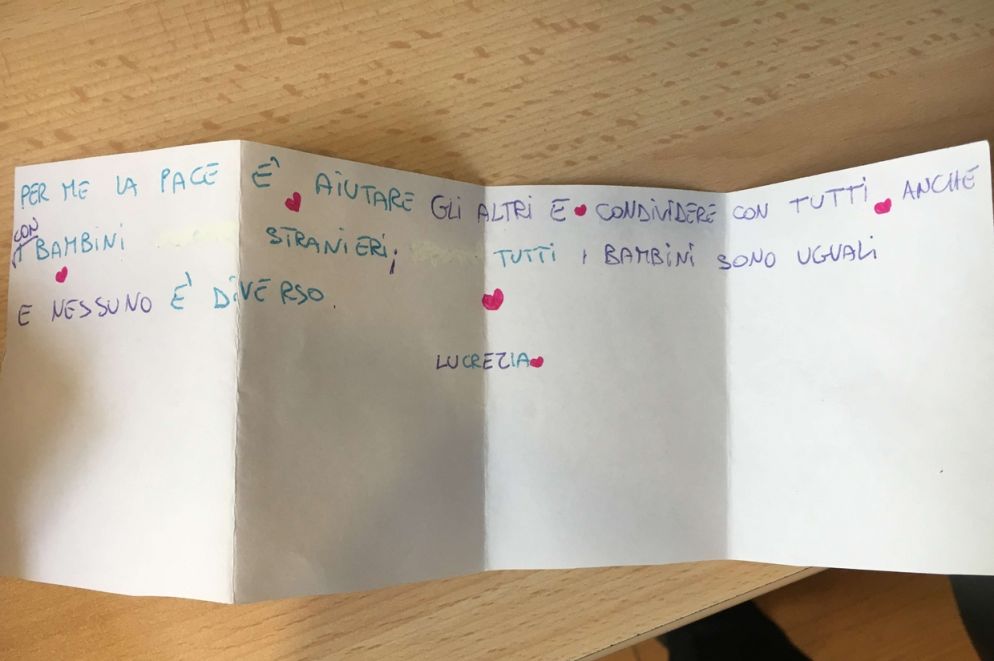 PER ME LA PACE È AIUTARE GLI ALTRI E CONDIVIDERE CON TUTTI ANCHE
CON BAMBINI STRANIERI; TUTTI I BAMBINI SONO UGUALI
E NESSUNO È DIVERSO.
LUCREZIA